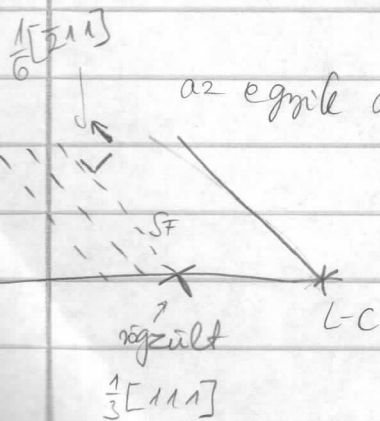 1/6 [2̄11]
az egyik
SF
L-C
rögzült
1/3 [111]